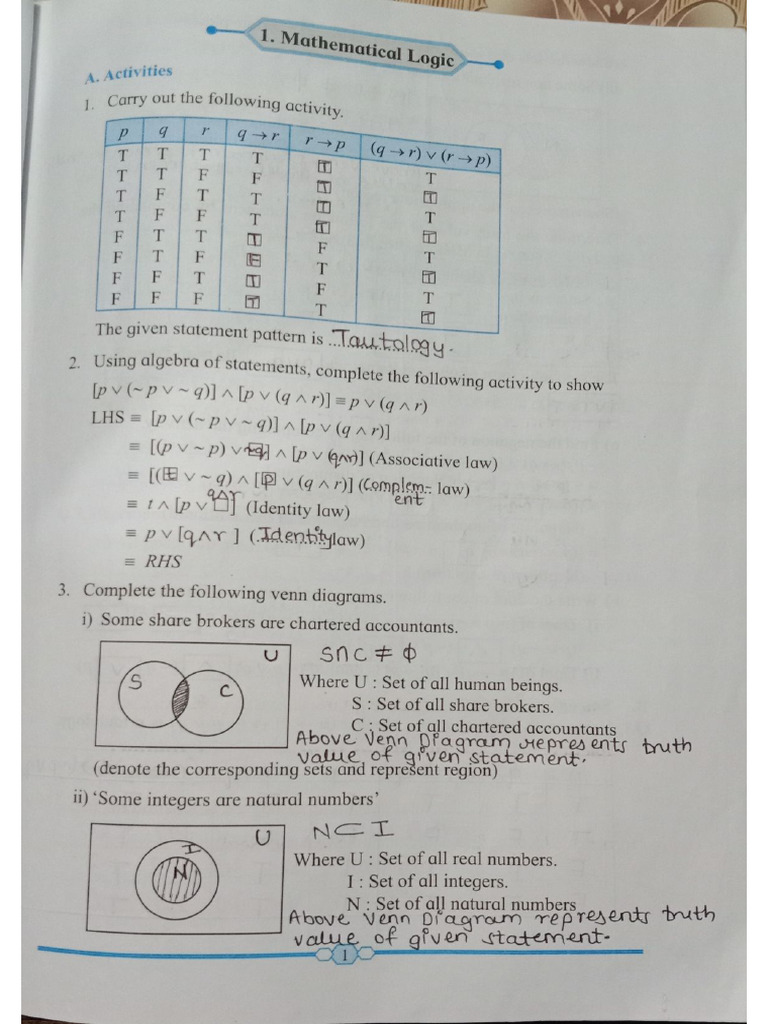 1. Mathematical Logic
A. Activities
1. Carry out the following activity.
p q r q → r r → p (q → r) ∨ (r → p)
T T T T T T
T T F F T T
T F T T T T
T F F T T T
F T T T F T
F T F F T T
F F T T F T
F F F T T T
The given statement pattern is ...Tautology.
2. Using algebra of statements, complete the following activity to show
[p ∨ (~ p ∨ ~ q)] ∧ [p ∨ (q ∧ r)] ≡ p ∨ (q ∧ r)
LHS ≡ [p ∨ (~ p ∨ ~ q)] ∧ [p ∨ (q ∧ r)]
≡ [(p ∨ ~ p) ∨ ~q] ∧ [p ∨ (q∧r)] (Associative law)
≡ [(t ∨ ~ q) ∧ [p ∨ (q ∧ r)] (Complem- law)
ent
q∧r
≡ t ∧ [p ∨ □] (Identity law)
≡ p ∨ [q∧r ] (Identity law)
≡ RHS
3. Complete the following venn diagrams.
i) Some share brokers are chartered accountants.
U S∩C ≠ ϕ
S C Where U : Set of all human beings.
S : Set of all share brokers.
C : Set of all chartered accountants
Above Venn Diagram represents truth
value of given statement.
(denote the corresponding sets and represent region)
ii) ‘Some integers are natural numbers’
U N⊂I
I
N Where U : Set of all real numbers.
I : Set of all integers.
N : Set of all natural numbers
Above Venn Diagram represents truth
value of given statement.
1